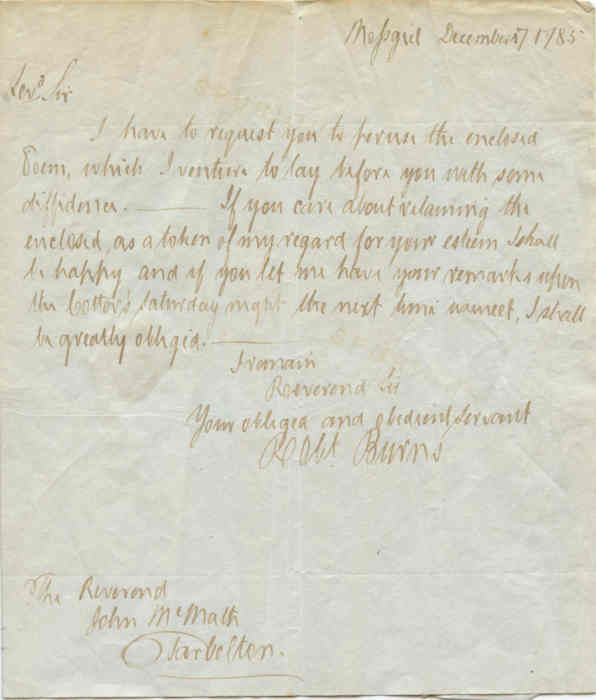 Mossgiel December 17 1785
Revd. Sir
I have to request you to peruse the enclosed
Poem, which I venture to lay before you with some
diffidence. ——— If you care about retaining the
enclosed, as a token of my regard for your esteem I shall
be happy and if you let me have your remarks upon
the Cottor's Saturday night the next time we meet, I shall
be greatly obliged. ———
I remain
Reverend Sir
Your obliged and obedient Servant
Robt. Burns
The Reverend
John McMath
Tarbolton.